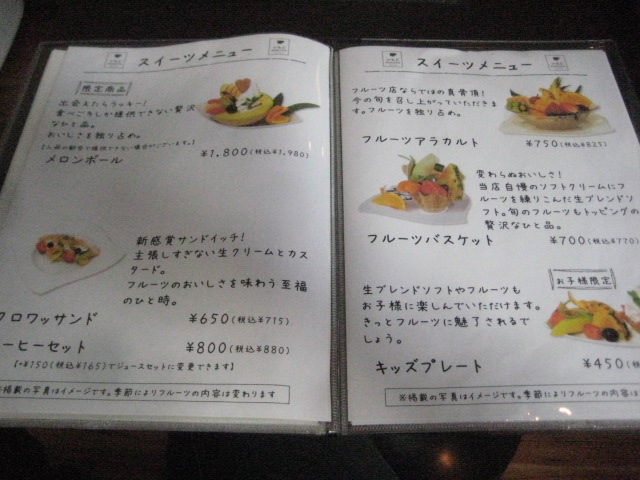 スイーツメニュー
限定商品
出会えたらラッキー!
食べごろしか提供できない贅沢
なひと品。
おいしさを独り占め。
メロンボール
¥1,800(税込¥1,980)
新感覚サンドイッチ!
主張しすぎない生クリームとカス
タード。
フルーツのおいしさを味わう至福
のひと時。
クロワッサンド
¥650(税込¥715)
ーヒーセット
¥800(税込¥880)
[+¥150(税込¥165)でジュースセットに変更できます]
※掲載の写真はイメージです。季節によりフルーツの内容は変わります
スイーツメニュー
フルーツ店ならではの真骨頂!
今の旬を召し上がっていただきま
す。フルーツを独り占め。
フルーツアラカルト
¥750(税込¥825)
変わらぬおいしさ!
当店自慢のソフトクリームにフ
ルーツを練りこんだ生ブレンドソ
フト。旬のフルーツもトッピングの
贅沢なひと品。
フルーツバスケット
¥700(税込¥770)
お子様限定
生ブレンドソフトやフルーツも
お子様に楽しんでいただけます。
きっとフルーツに魅了されるで
しょう。
キッズプレート
¥450(税込
※掲載の写真はイメージです。季節によりフルーツの内容は